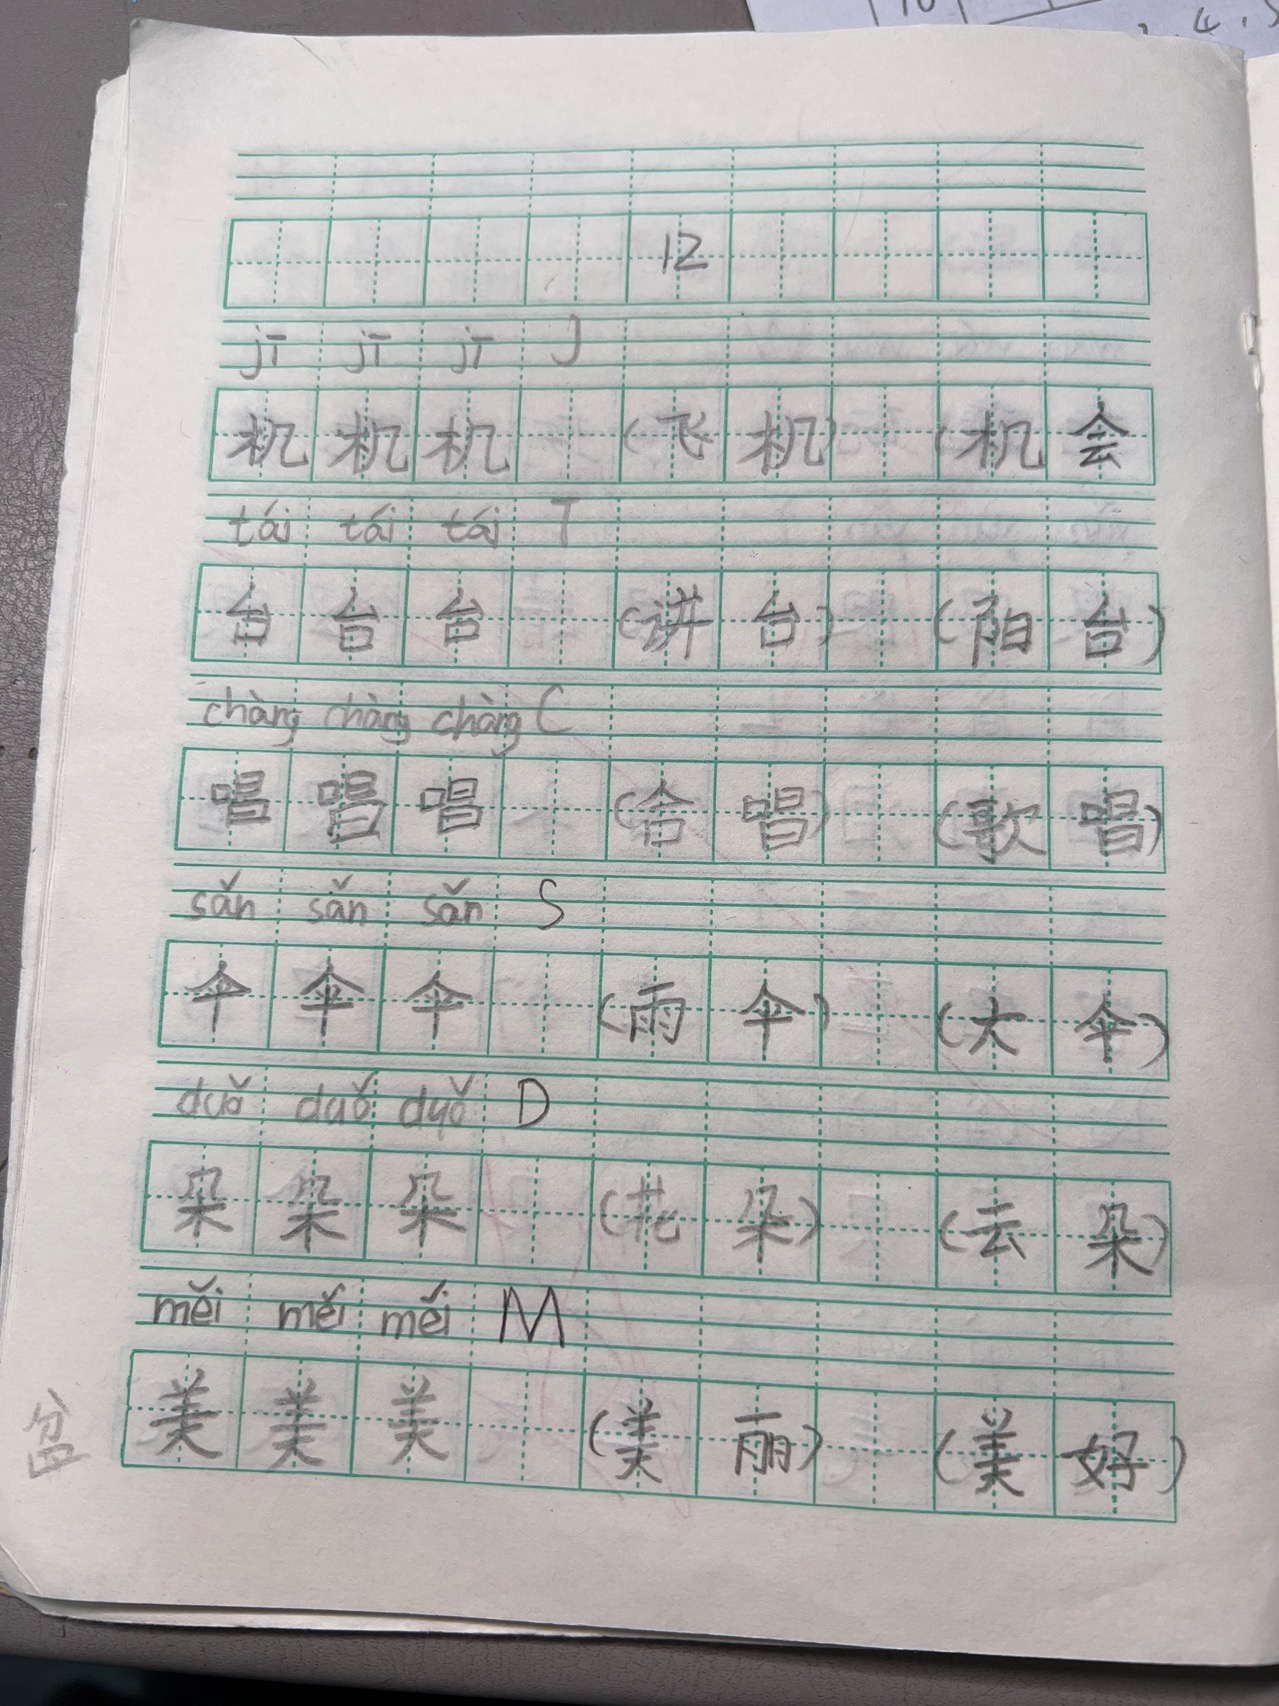 10
4.5
12
jī jī jī J
机机机(飞机)(机会
tái tái tái T
台台台(讲台)(阳台)
chàng chàng chàng C
唱唱唱(合唱)(歌唱)
sǎn sǎn sǎn S
伞伞伞(雨伞)(大伞)
duǒ duǒ duǒ D
朵朵朵(花朵)(云朵)
měi měi měi M
美美美(美丽)(美好)
盆